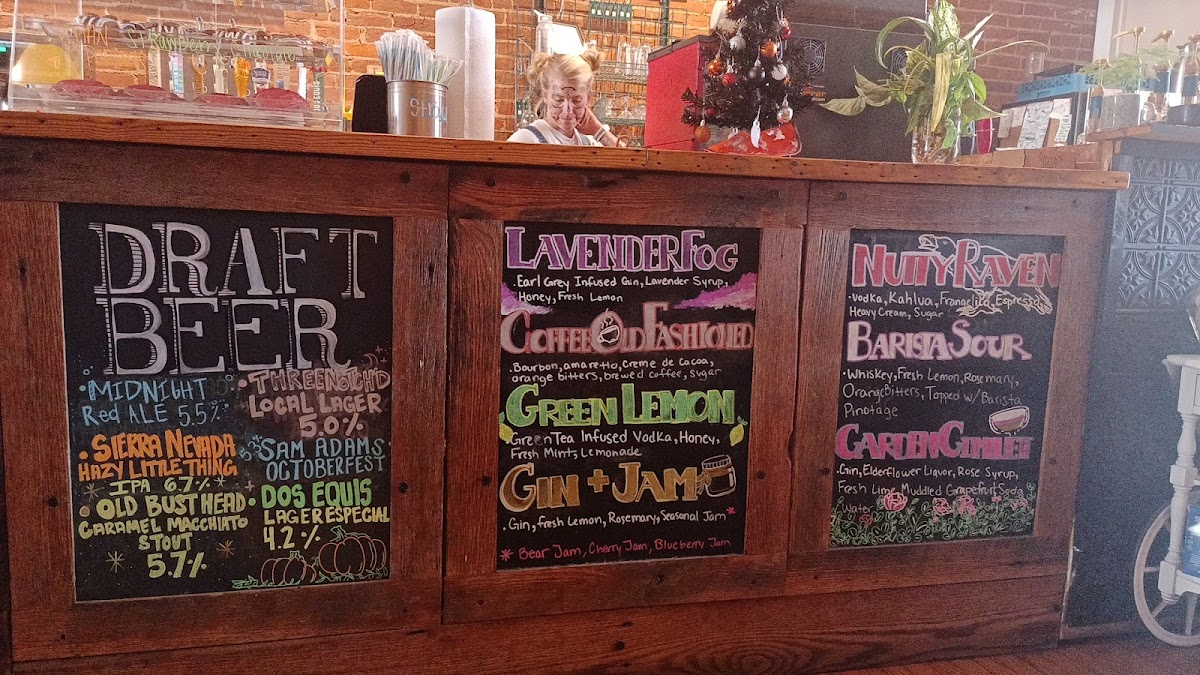 Strawberry
DRAFT
BEER
· MIDNIGHT
Red ALE 5.5%
· SIERRA NEVADA
HAZY LITTLE THING
IPA 6.7%
· OLD BUST HEAD
CARAMEL MACCHIATO
STOUT
5.7%
· THREE NOTCH'D
LOCAL LAGER
5.0%
· SAM ADAMS
OCTOBERFEST
· DOS EQUIS
LAGER ESPECIAL
4.2%
LAVENDER FOG
· Earl Grey Infused Gin, Lavender Syrup,
Honey, Fresh Lemon
COFFEE OLD FASHIONED
· Bourbon, amaretto, Creme de Cacoa,
orange bitters, brewed coffee, sugar
GREEN LEMON
· Green Tea Infused Vodka, Honey,
Fresh Mint, Lemonade
GIN + JAM
· Gin, fresh Lemon, Rosemary, Seasonal Jam *
* Bear Jam, Cherry Jam, Blueberry Jam
NUTTY RAVEN
· Vodka, Kahlua, Frangelico, Espresso,
Heavy Cream, Sugar
BARISTA SOUR
· Whiskey, Fresh Lemon, Rosemary,
Orange Bitters, Topped w/ Barista
Pinotage
GARDEN GIMLET
· Gin, Elderflower Liquor, Rose Syrup,
Fresh Lime, Muddled Grapefruit, Soda
Water